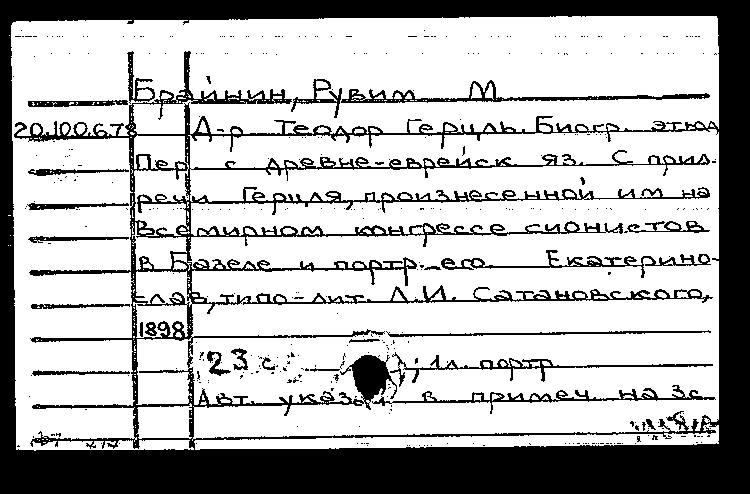 Брайнин, Рувим М
20.100.6.78 Д-р Теодор Герцль. Биогр. этюд
Пер. с древне-еврейск яз. С прил.
речи Герцля, произнесенной им на
Всемирном конгрессе сионистов
в Базеле и портр. его. Екатерино-
слав, типо-лит. Л.И. Сатановского,
1898
23 с. ; 1л. портр
Авт. указан в примеч. на 3с